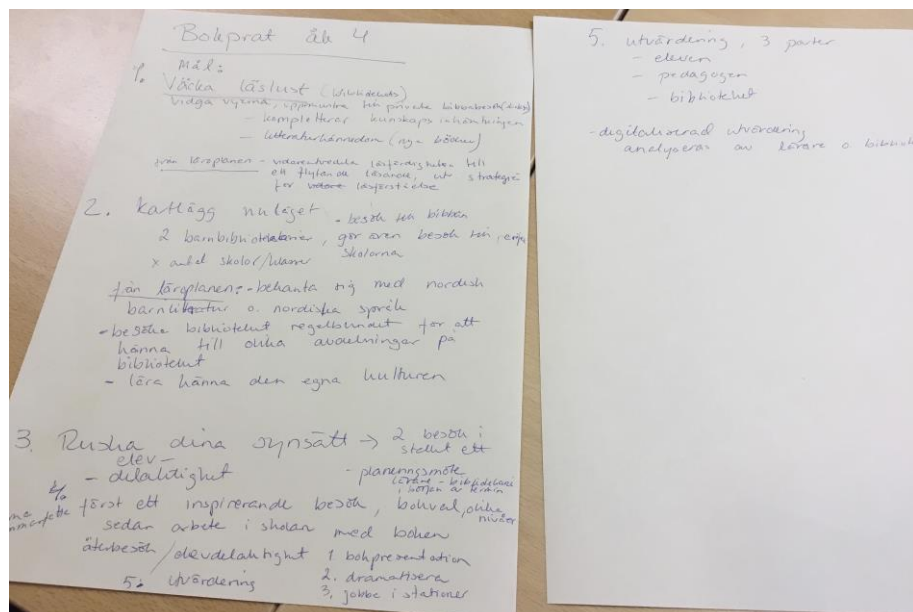 Bokprat åk 4
1. Mål:
Väcka läslust (bibliotekets)
vidga vyerna, uppmuntra till privata
- kompletterar kunskapsinhämtningen
- litteraturkännedom (nya böcker)
från läroplanen - vidareutveckla läsfärdigheten till
ett flytande läsande, strategier
för läsförståelse
2. Kartlägg nuläget - besök till bibban
2 barnbibliotekarier, gör även besök till
x antal skolor/klasser skolorna
från läroplanen: - bekanta sig med nordisk
barnlitteratur o. nordiska språk
- besöka biblioteket regelbundet för att
känna till olika avdelningar på
biblioteket
- lära känna den egna kulturen
3. Ruska dina synsätt → 2 besök i
stället ett
elev-
- delaktighet - planeringsmöte
lärare - bibliotekarie
i början av termin
först ett inspirerande besök, bokval, olika
nivåer
sedan arbete i skolan med boken
återbesök / elevdelaktighet 1 bokpresentation
2. dramatisera
3. jobba i stationer
5. utvärdering
5. utvärdering, 3 parter
- eleven
- pedagogen
- biblioteket
- digitaliserad utvärdering
analyseras av lärare o